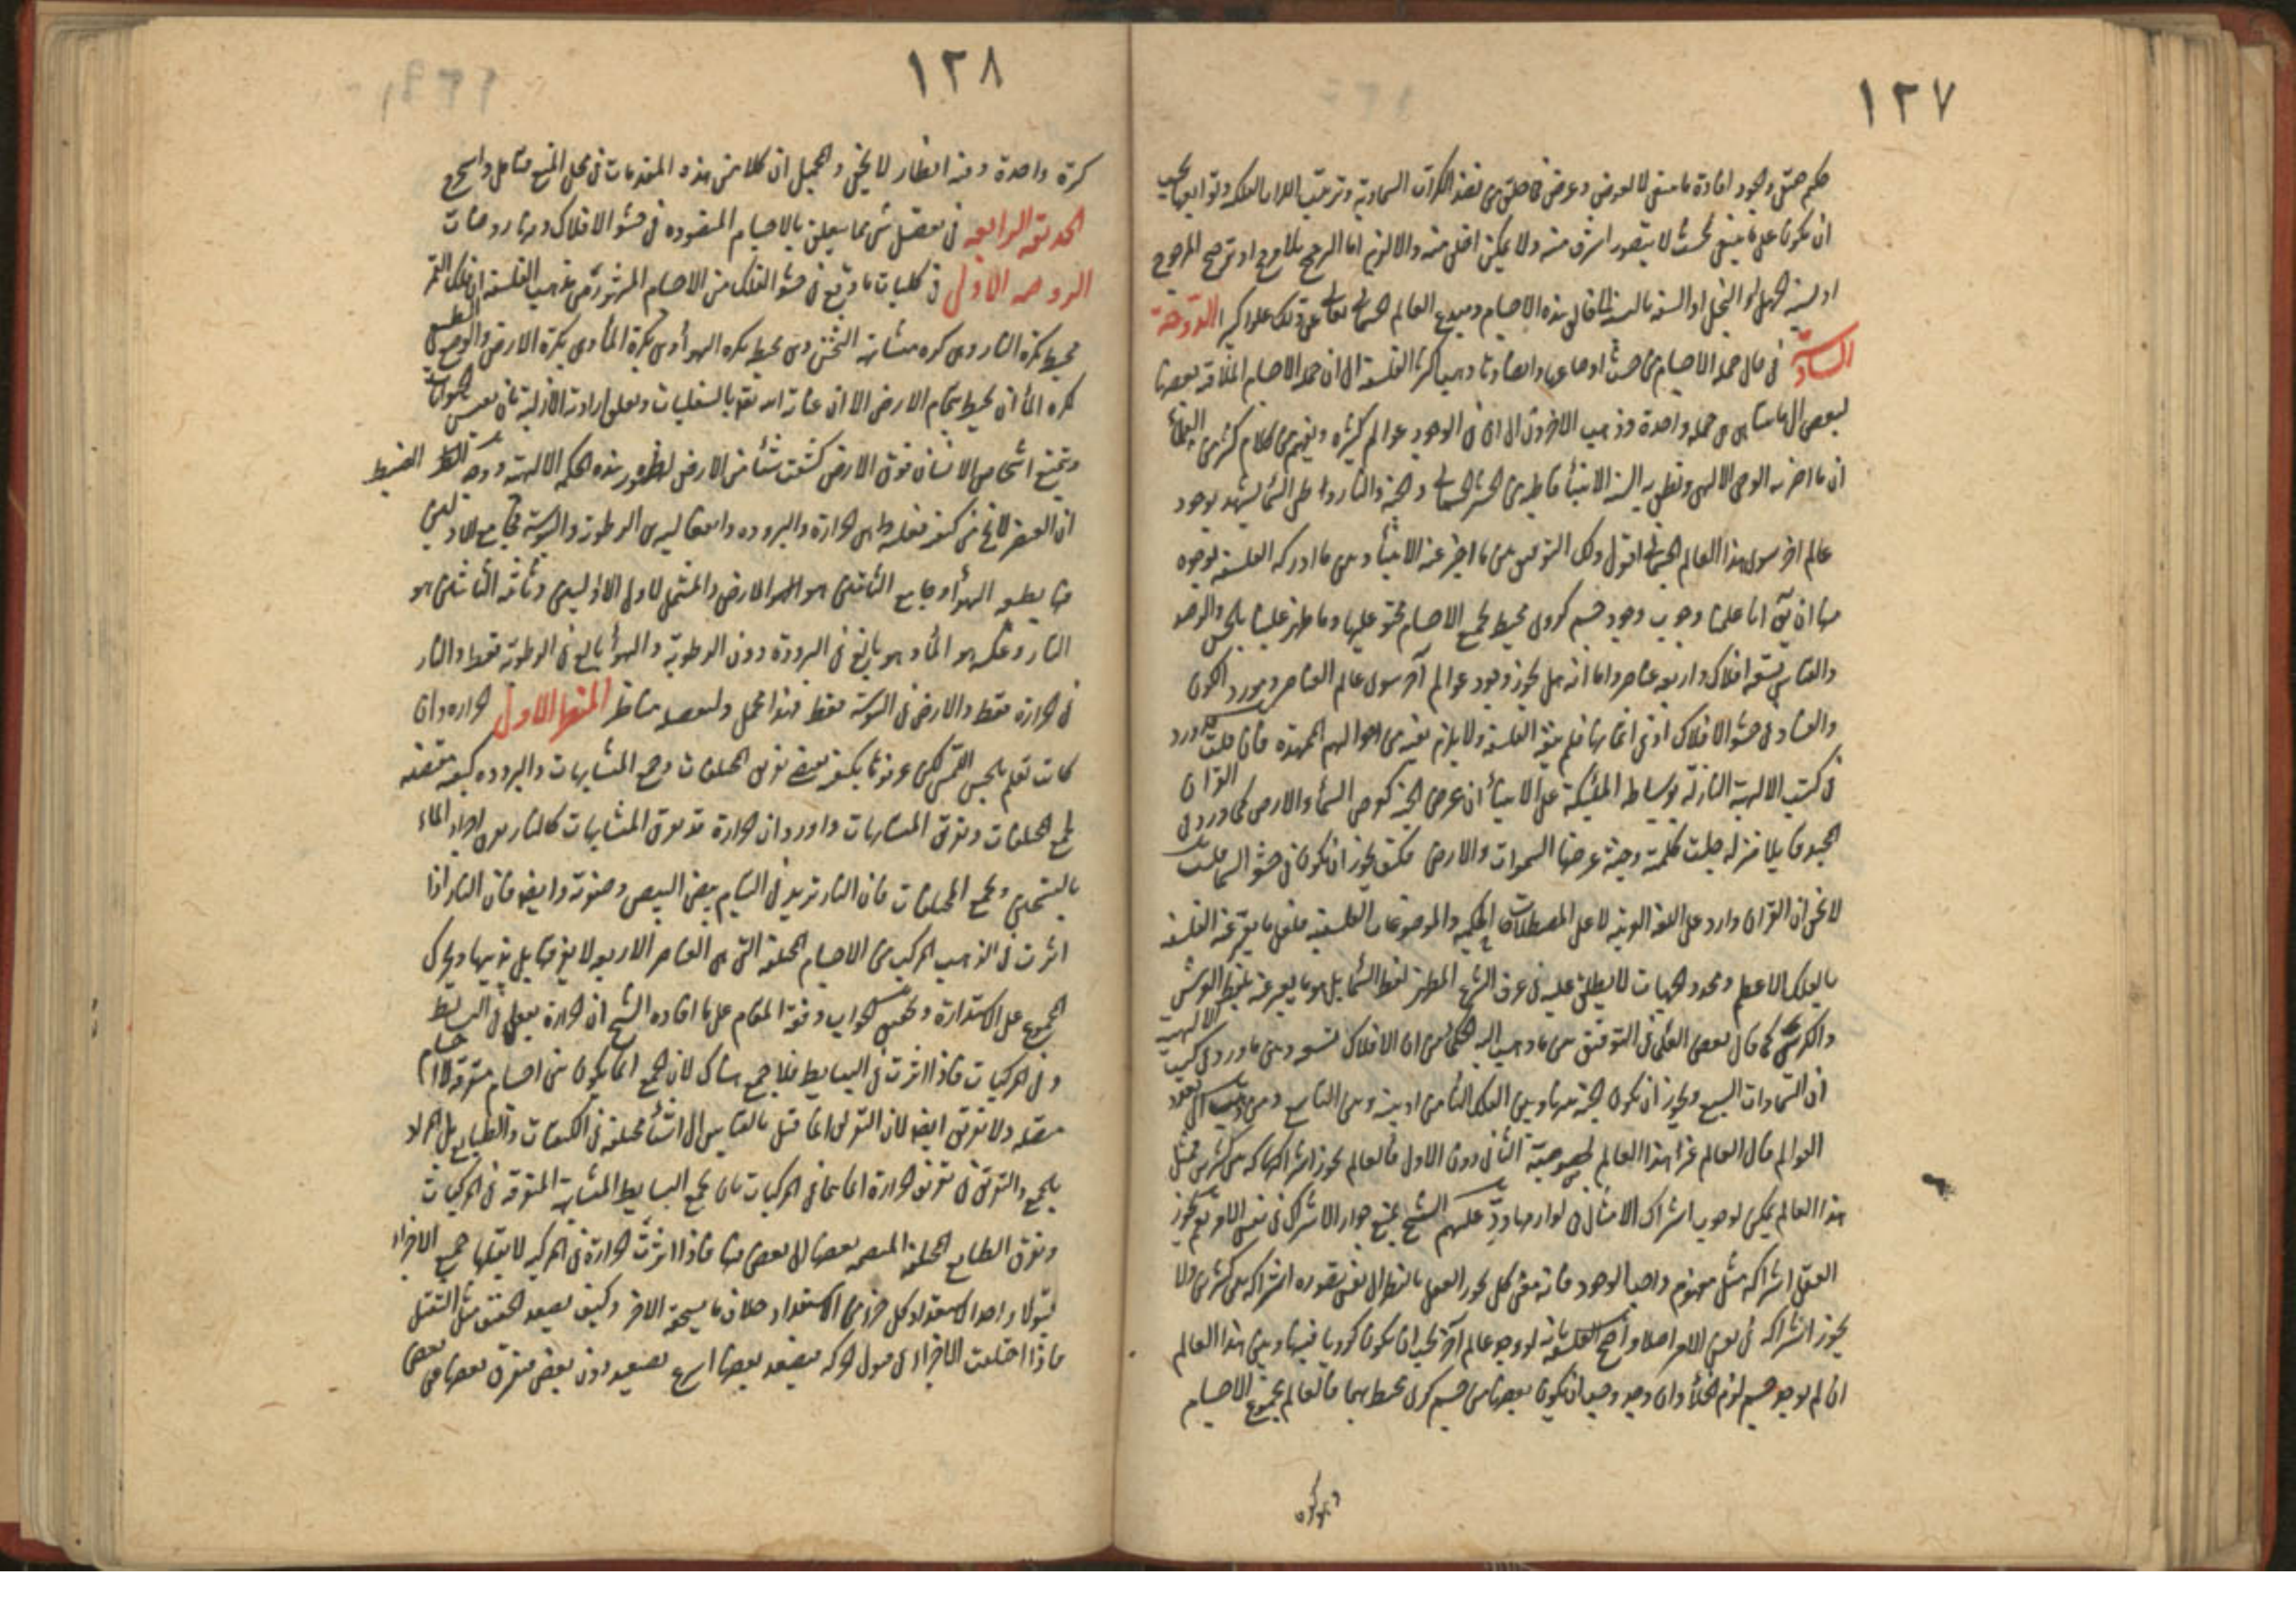 ١٢٧
حكيم حتى وجود افادة ما ينبغي لا لعوض وغرض فاحلق من نضد الكرات السماوية وترتيب
ان يكون على ما ينبغي بحيث لا يتصور اشرف منه ولا يمكن افضل منه والا لزم اما الترجيح بلا مرجح او ترجيح المرجوح
او نسبة الجهل او البخل او السفه بالنسبة الى خالق هذه الاجسام ومبدع العالم الجسماني تعالى عن ذلك علوا كبيرا الدوحة
السادسة في ان جملة الاجسام من حيث اوضاعها وابعادها ذهب اكثر الفلسفة الى ان جملة الاجسام المتلاقية بعضها
لبعض الى هي جملة واحدة وذهب الاخرون الى ان في الوجود عوالم كثيرة ويفهم من كلام كثير من
ان ما اخبر به الوحي الالهي ونطق به السنة الانبياء قاطبة من الحشر الجسماني والجنة والنار يشهد بوجود
عالم اخر سوى هذا العالم الجسماني اقول ولك التوفيق بين ما اخبر عنه الانبياء وبين ما ادركه الفلسفة بوجوه
منها ان يق انا علمنا وجوب وجود جسم كروي محيط بجميع الاجسام محتو عليها وما ظهر علينا بالحس والرصد
والقياس تسعة افلاك واربعة عناصر واما انه هل يجوز وجود عوالم اخر سوى عالم العناصر ومورد الكون
والفساد في حشو الافلاك او في اثخانها فلم ينفه الفلسفة ولا يلزم نفيه من اصولهم الممهدة فان قلت ورد
في كتب الالهية النازلة بوساطة الملئكة على الانبياء ان عرض الجنة كعرض السماء والارض كما ورد في القران
المجيد قايلا منزله جلت كلمته وجنة عرضها السموات والارض فكيف يجوز ان تكون في حشو السماء قلت
لا يخفى ان القران وارد على اللغة العربية لا على المصطلحات الحكمية والموضوعات الفلسفية فلعل ما يعبر عنه الفلسفة
بالفلك الاعظم ومحدد الجهات لا يطلق عليه في عرف الشرع المطهر لفظ السماء بل هو ما يعبر عنه بلفظ العرش
والكرسي كما قال بعض العلماء في التوفيق بين ما ذهب اليه الحكماء من ان الافلاك تسعة وبين ما ورد في كتب الالهية
ان السموات السبع ويجوز ان تكون الجنة بينها وبين الفلك الثامن او بينه وبين التاسع ومن ذهب الى تعدد
العوالم قال العالم غير هذا العالم لخصوصية الثاني دون الاول فالعالم يجوز اشراكها بين كثيرين فمثل
هذا العالم ممكن لوجوب اشتراك الامثال في لوازمها ورد عليهم الشيخ بمنع جواز الاشتراك في نفس الامر نعم يجوز
العقل اشتراكه مثل مفهوم واجب الوجود فانه معنى كلي يجوز العقل بالنظر الى نفس تصوره اشتراكه بين كثيرين ولا
يجوز اشتراكه في نفس الامر اصلا واحتج الفلسفة بانه لو وجد عالم اخر يجب ان يكون كرويا فبينها وبين هذا العالم
ان لم يوجد جسم لزم الخلأ وان وجد وجب ان يكون بعضها من جسم كري محيط بهما فالعالم بجميع الاجسام
وهو كون
١٢٨
كرة واحدة وفيه انظار لا يخفى والمجمل ان كلا من هذه المقدمات في محل المنع فتأمل
الحديقة الرابعة في تفصيل شيء مما يتعلق بالاجسام المنضودة في حشو الافلاك وفيها روضات
الروضة الاولى في كليات ما وقع في حشو الفلك من الاجسام المشهور من مذهب الفلسفة ان فلك القمر
محيط بكرة النار وهي كرة متشابهة الثخن وهي محيط بكرة الهواء وهي بكرة الماء وهي بكرة الارض والوضع الطبيعي
لكرة الماء ان يحيط بتمام الارض الا ان عناية الله تعالى بالسفليات وتعلق ارادته الازلية بان يعيش الحيوانات
ويتمتع اشخاص الانسان فوق الارض كشفت شيئا من الارض لظهور هذه الحكم الالهية ووجه الضبط
ان العنصر لا يخ من كيفيتين فعليتين هي الحرارة والبرودة وانفعاليتين هي الرطوبة واليبوسة فجامع
هو الهواء وجامع الثانيتين هو الارض والمشتمل لاولى الاوليين وثانية الثانيتين هو
النار وعكسه هو الماء وهو بالغ في البرودة دون الرطوبة والهواء بالغ في الرطوبة فقط والنار
في الحرارة فقط والارض في اليبوسة فقط هذا مجمل ولتفصيله مناظر المنظر الاول الحرارة وان
كانت تعلم بالحس اللمس لكن عرفوها بكيفية تفرق المختلفات وجمع المتشابهات والبرودة كيفية مقتضية
لجمع المختلفات وتفرق المتشابهات واورد ان الحرارة قد تفرق المتشابهات كالنار يفرق اجزاء الماء
بالتبخير وتجمع المختلفات فان النار تزيد في التيام بيض البيض وصفرته وايضا فان النار اذا
اثرت في الذهب المركب من الاجسام المختلفة التي هي العناصر الاربعة لا يفرقها بل يذيبها ويحرك
المجموع على الاستدارة وتحقيق الجواب وفقه المقام على ما افاده الشيخ ان الحرارة يفعل في البسايط
وفي المركبات فاذا اثرت في البسايط فلا جمع هناك لان الجمع انما يكون من اجسام متفرقة لا
متصلة ولا تفرق ايضا لان التفرق انما قيل بالقياس الى اشياء مختلفة في الكيفيات والطبايع بل المراد
بالجمع والتفرق في تعريف الحرارة انما هما في المركبات بان يجمع البسايط المتشابهة المتفرقة في المركبات
وتفرق الطبايع المختلفة المنضمة بعضها الى بعض فيها فاذا اثرت الحرارة في المركب لا يقبلها جميع الاجزاء
قبولا واحدا لاستعداد كل جزء من الاستعداد خلاف ما يستحقه الاخر وكيف يصعد الخفيف مثل الثقيل
فاذا اختلفت الاجزاء في قبول الحركة فيصعد بعضها اسرع بصعيد دون بعض فتفرق بعضها من بعض